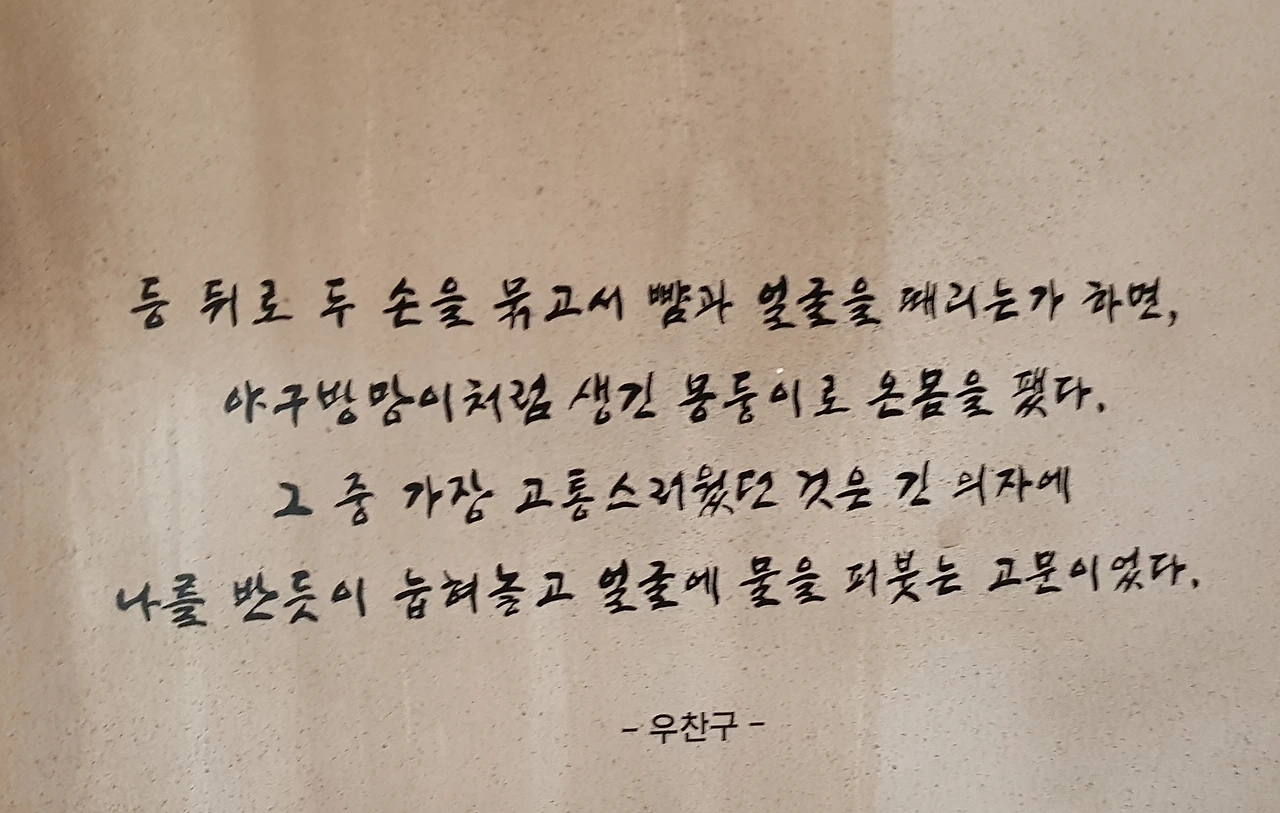 등 뒤로 두 손을 묶고서 뺨과 얼굴을 때리는가 하면,
야구방망이처럼 생긴 몽둥이로 온몸을 팼다.
그 중 가장 고통스러웠던 것은 긴 의자에
나를 반듯이 눕혀놓고 얼굴에 물을 퍼붓는 고문이었다.
- 우찬구 -